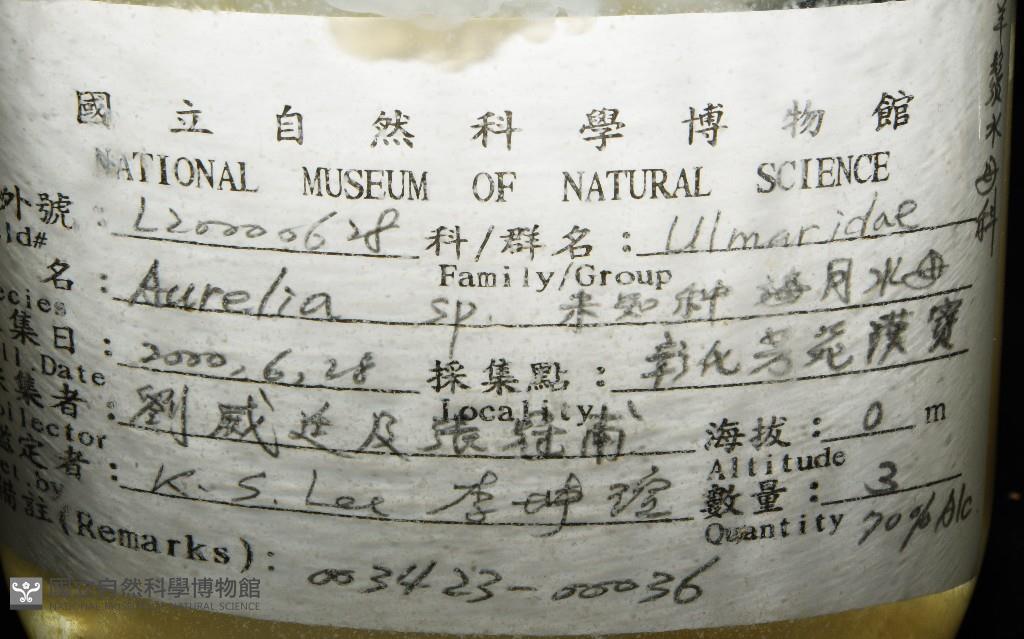 國立自然科學博物館
NATIONAL MUSEUM OF NATURAL SCIENCE
外號: L20000628 科/群名: Ulmaridae
ld# Family/Group
名: Aurelia sp. 未知種 海月水母
ecies
集日: 2000,6,28 採集點: 彰化芳苑漢寶
Date Locality
集者: 劉威廷及張 海拔: 0 m
llector Altitude
定者: K.S. Lee 李坤瑄 數量: 3
by Quantity 70% Alc
註(Remarks): 003423-00036
羊鬚水母科
國立自然科學博物館
NATIONAL MUSEUM OF NATURAL SCIENCE